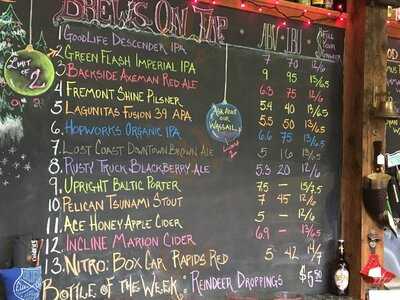 BREWS ON TAP ABV IBU
FILL YOUR
1 GOODLIFE DESCENDER IPA 7 70 12/6
2 GREEN FLASH IMPERIAL IPA 9 95 13/6.5
3 BACKSIDE AXEMAN RED ALE 6.3 75 12/6
4 FREMONT SHINE PILSNER 5.4 40 13/6.5
5 LAGUNITAS FUSION 39 APA 5.5 50 13/6.5
6 HOPWORKS ORGANIC IPA 6.6 75 13/6.5
7 LOST COAST DOWNTOWN BROWN ALE 5 16 13/6.5
8 RUSTY TRUCK BLACKBERRY ALE 5.3 20 12/6
9 UPRIGHT BALTIC PORTER 7.5 — 15/7.5
10 PELICAN TSUNAMI STOUT 7 45 12/6
11 ACE HONEY APPLE CIDER 5 — 12/6
12 INCLINE MARION CIDER 6.9 — 13/6.5
13 NITRO: BOX CAR RAPIDS RED 5 42 14/7
BOTTLE OF THE WEEK: REINDEER DROPPINGS $5.50
LIMIT OF 2
ASK ABOUT OUR WASSAIL
LIMIT 2